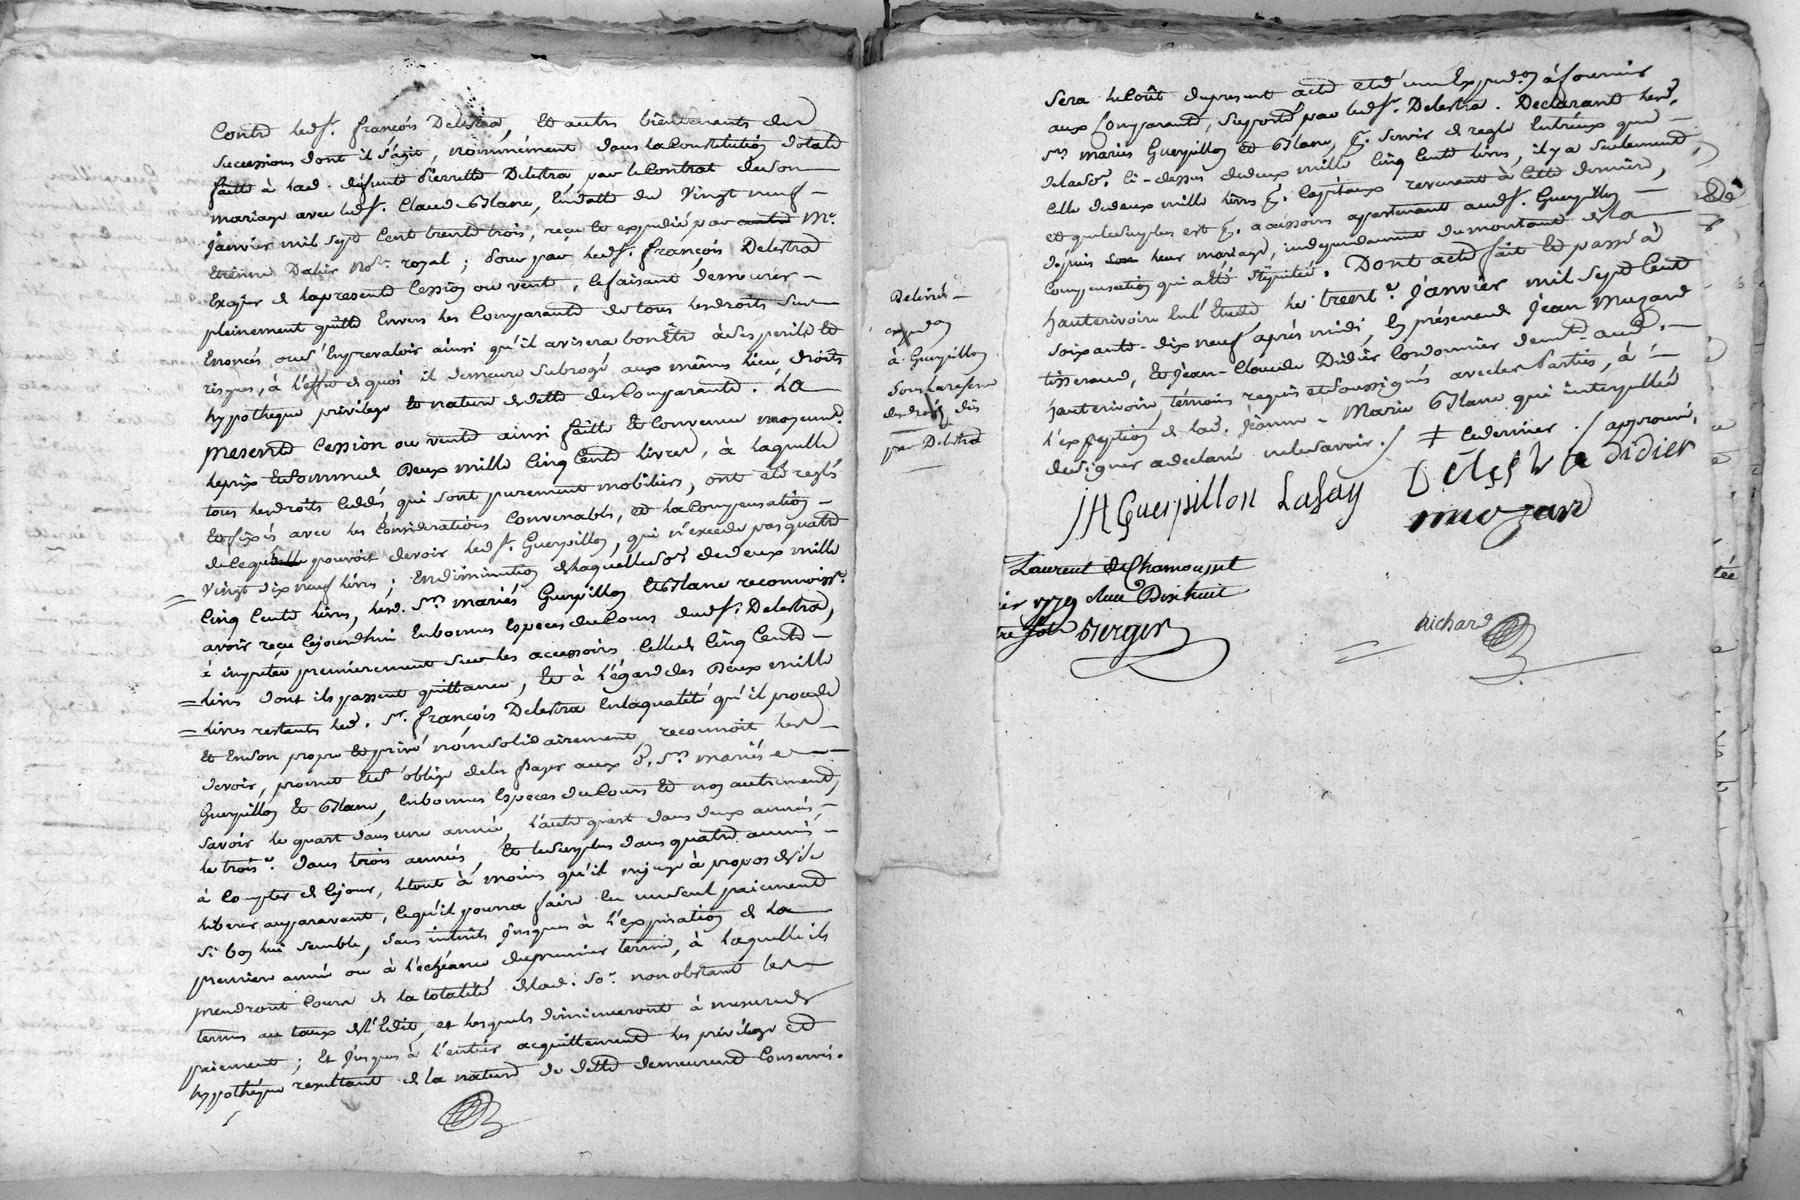 Contre led. sr. françois Delestra, et autres bientenants des
successions dont il s'agit, nommément dans la Constitution dotale
faitte à lad. défunte Pierrette Delestra par le Contrat de son
mariage avec led. sr. Claude Blanc, en datte du Vingt neuf
Janvier mil sept Cent trente trois, reçu et expédié par Me.
Etienne Dalier Nore. royal ; pour par led. sr. françois Delestra
Exciper de la presente Cession ou vente, le faisant demeurer
pleinement quitte Envers les Comparants de tous les droits sur
Enoncés ou s'En prevaloir ainsi qu'il avisera bon Etre à ses perils et
risques, à l'effet de quoi il demeure subrogé aux mêmes lieu, droits
hypotheque privilege et nature de dette des Comparants. La
presente Cession ou vente ainsi faitte et Convenue moyennt.
le prix et somme de Deux mille Cinq Cents livres, à laquelle
tous les droits Cedés, qui sont purement mobiliers, ont été reglés
et fixés avec les Considerations Convenables, et la Compensation
de ce que pouvoit devoir led. sr. Guerpillon, qui n'excede pas quatre
Vingt dix neuf livres ; En diminution de laquelle so. de deux mille
Cinq Cents livres, lesd. srs. mariés Guerpillon et Blanc reconnoisst.
avoir reçu Cejourdhui En bonnes Especes du Cours dud. sr. Delestra,
à imputer premierement sur les accessoires Celle de Cinq Cents
livres dont ils passent quittance, Et à l'égard des Deux mille
livres restants led. sr. françois Delestra En la qualité qu'il procede
et En son propre et privé nom solidairement reconnoit les
devoir, promet et s'oblige de les payer aux d. srs. mariés
Guerpillon et Blanc, En bonnes Especes du Cours et non autrement,
savoir le quart dans une année, l'autre quart dans deux années
le troise. dans trois années, et le surplus dans quatre années
à Compter de Cejour, letout à moins qu'il ne juge à propos de se
liberer auparavant, Ce qu'il pourra faire En un seul paiement
si bon lui semble, sans interêts jusques à l'expiration de la
premiere année ou à l'echéance du premier terme, à laquelle ils
prendront Cours de la totalité de lad. so. nonobstant les
termes au taux de l'Edit, et lesquels diminueront à mesure des
paiements ; Et jusques à l'entier acquittement les privilege et
hypothéque resultant de la nature de dette demeurent Conservés.
sera le Coût du present acte et d'une Expedon. à fournir
aux Comparants, suporté par led. sr. Delestra. Declarant lesd.
srs. mariés Guerpillon et Blanc, pr. servir de regle Entr'eux que
de lad. so. Ci-dessus de deux mille Cinq Cents livres, il y a seulement
Celle de deux mille livres pr. Capitaux revenant à Cette derniere,
et que le surplus est pr. accessoirs appartenant aud. sr. Guerpillon
depuis leur mariage, independamment du montant de la
Compensation qui a été stipulée. Dont acte fait et passé à
hauterivoire En l'Etude le trente. Janvier mil sept Cent
soixante-dix neuf après midi, En présence de Jean Muzard
tisserand, et Jean-Claude Didier Cordonnier demts. aud.
hauterivoire, témoins requis et soussignés avec les Parties, à
l'exception de lad. Jeanne-Marie Blanc qui interpellée
de signer a declaré ne le savoir ./ ≠ Ce dernier ./ approuvé,
JH Guerpillon Lafay Delestra Didier
muzard
Delivré
expedon
à Guerpillon
par Delestra
Laurent de Chamousset
1779 Reçu Dix huit
Berger
Richard